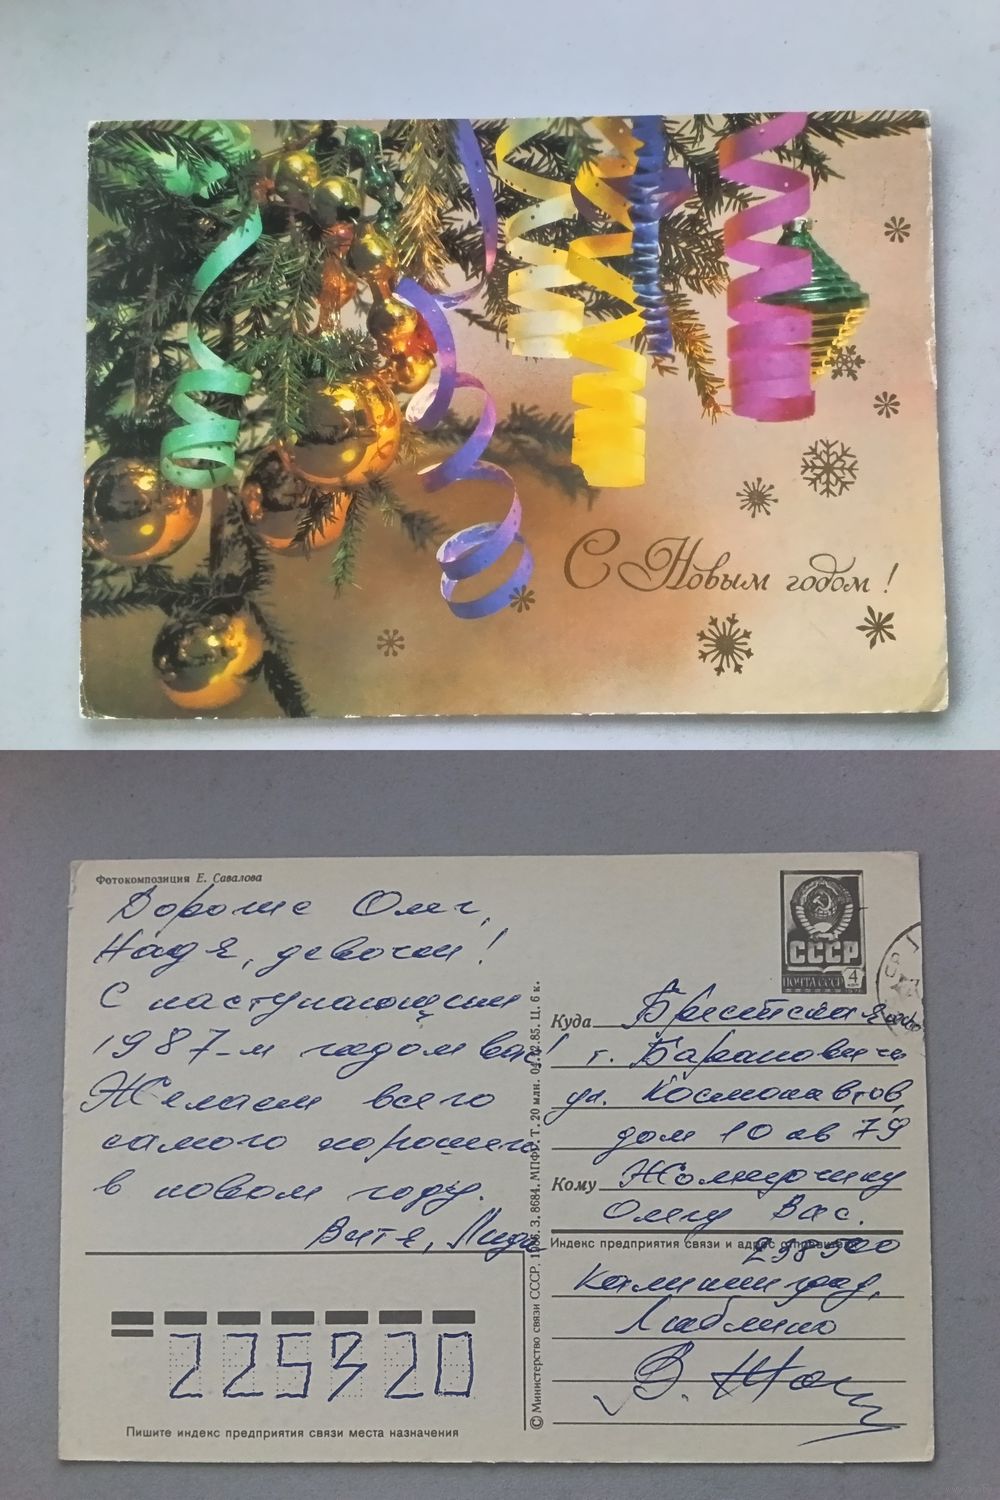 С Новым годом!
Фотокомпозиция Е. Савалова
Дорогие Олег,
Надя, девочки!
С наступающим
1987-м годом вас!
Желаем всего
самого хорошего
в новом году.
Витя, Лида
СССР
ПОЧТА СССР
4
Куда Брестская
г. Барановичи
ул. Космонавтов,
дом 10 кв 79
Кому
Олегу Вас.
Индекс предприятия связи и адрес отправителя
Калининград,
Люблино
В.
225320
Пишите индекс предприятия связи места назначения
© Министерство связи СССР. З. 8684. МПФГ. Т. 20 млн. Ц. 6 к.